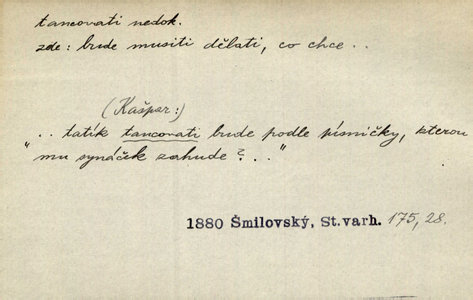 tancovati nedok.
zde: bude musiti dělati, co chce . .
(Kašpar:)
". . tatík tancovati bude podle písničky, kterou
mu synáček zahude? . ."
1880 Šmilovský, St. varh. 175, 28.